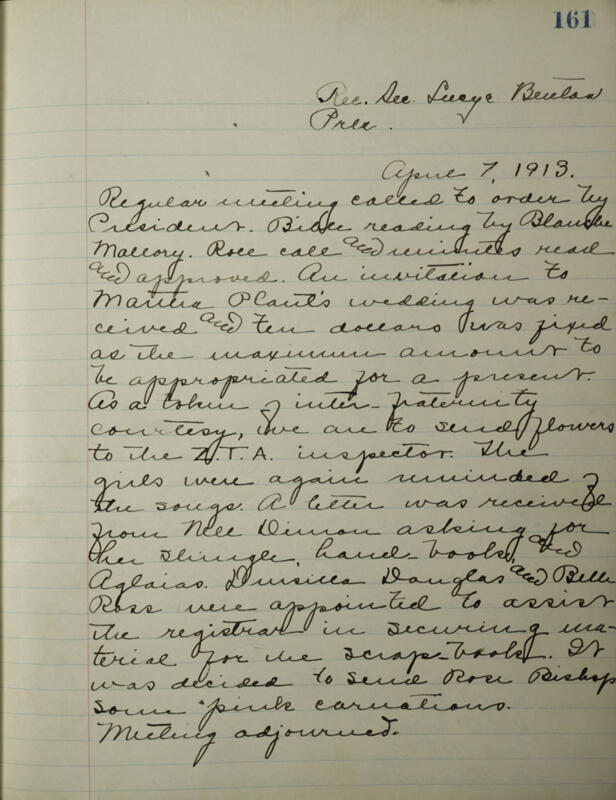 161
Rec. Sec. Lucye Benton
Prex.
April 7, 1913.
Regular meeting called to order by
President. Bible reading by Blanche
Mallory. Roll call and minutes read
and approved. An invitation to
Martha Plant's wedding was re-
ceived and ten dollars was fixed
as the maximum amount to
be appropriated for a present.
As a token of inter-fraternity
courtesy, we are to send flowers
to the Z.T.A. inspector. The
girls were again reminded of
the songs. A letter was received
from Nell Dimon asking for
her shingle, hand-book, and
Aglaias. Drusilla Douglas and Belle
Ross were appointed to assist
the registrar in securing ma-
terial for the scrap-book. It
was decided to send Rose Bishop
some pink carnations.
Meeting adjourned.